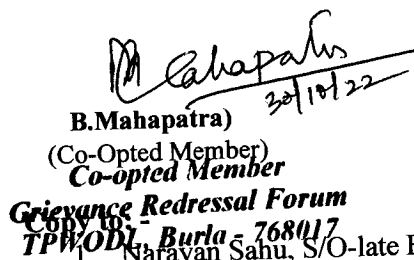 B Mahapatra
30/10/22
B.Mahapatra)
(Co-Opted Member)
Co-opted Member
Grievance Redressal Forum
Copy to: -
TPWODL, Burla - 768017
1. Narayan Sahu, S/O-late P